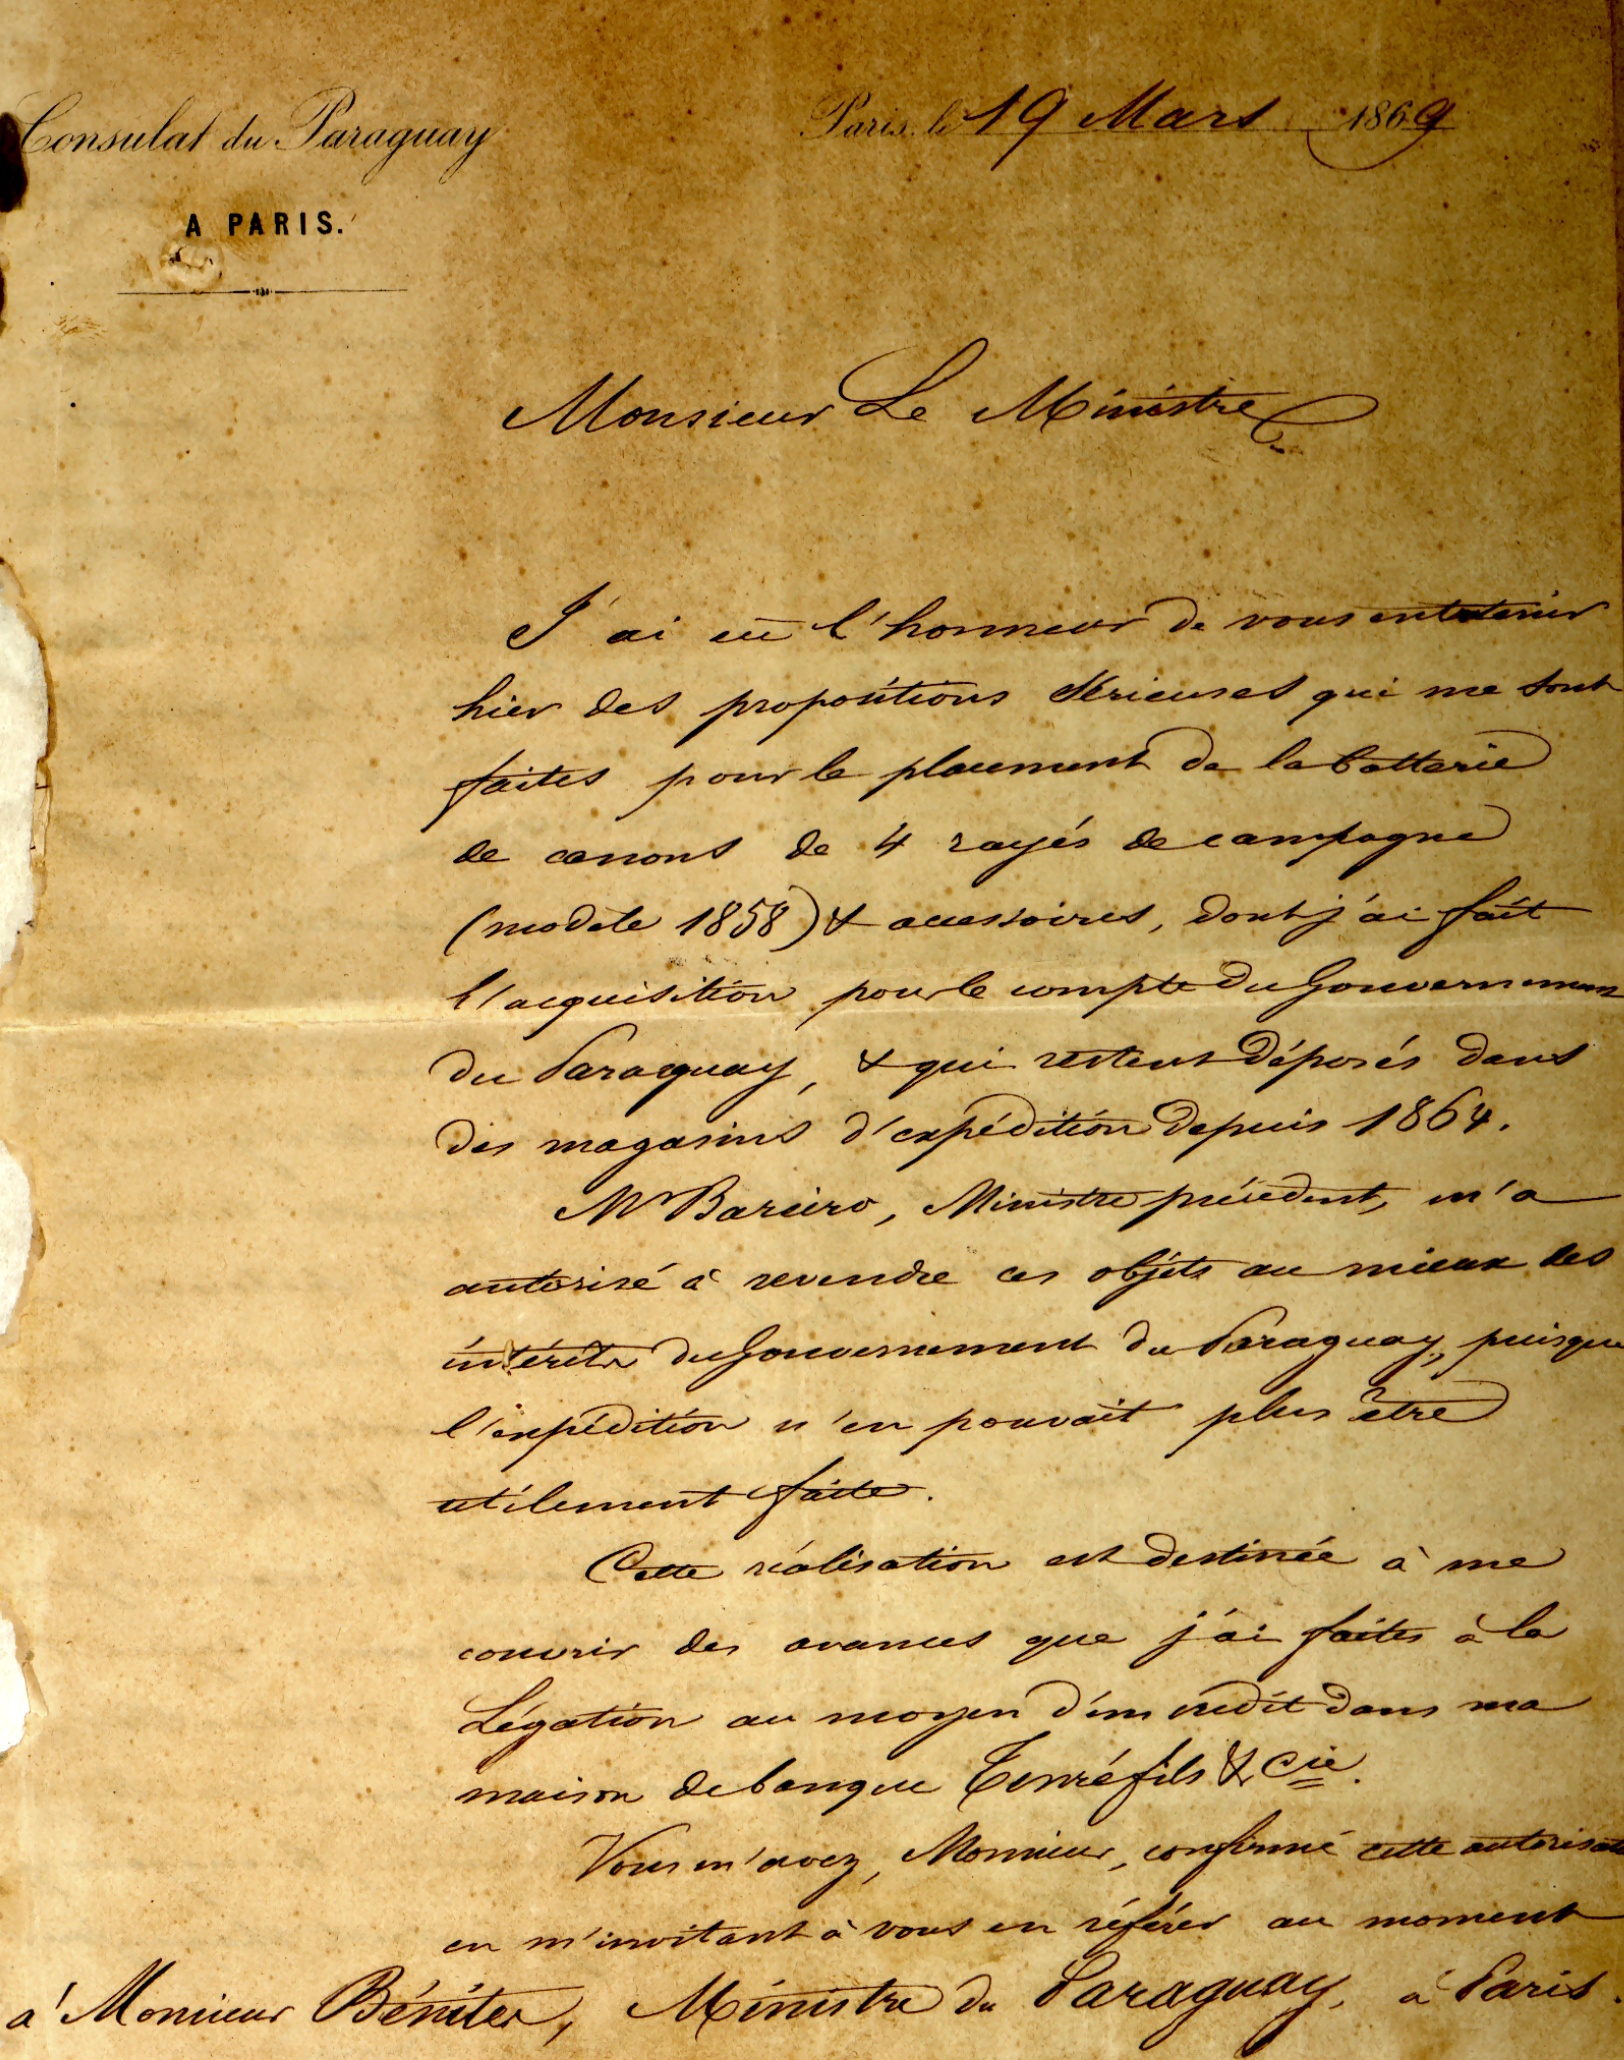 Consulat du Paraguay
A PARIS.
Paris, le 19 Mars 1869
Monsieur Le Ministre
J'ai eu l'honneur de vous entretenir
hier des propositions sérieuses qui me sont
faites pour le placement de la batterie
de canons de 4 rayés de campagne
(modele 1858) & accessoires, dont j'ai fait
l'acquisition pour le compte du Gouvernement
du Paraguay, & qui restent déposés dans
des magasins d'expédition depuis 1864.
Mr Bareiro, Ministre précédent, m'a
autorisé à revendre ces objets au mieux des
intérêts du Gouvernement du Paraguay, puisque
l'expédition n'en pouvait plus être
utilement faite.
Cette réalisation est destinée à me
couvrir des avances que j'ai faites à la
Légation au moyen d'un crédit dans ma
maison de banque Tenré fils & Cie.
Vous m'avez, Monsieur, confirmé cette autorisation
en m'invitant à vous en référer au moment
à Monsieur Bénites, Ministre du Paraguay, à Paris.